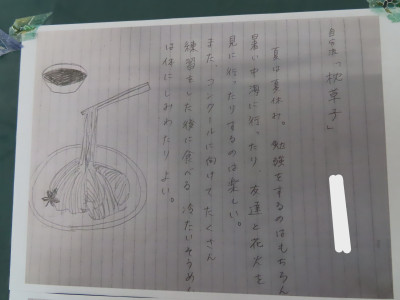 自分流「枕草子」
夏は夏休み。勉強をするのはもちろん
暑い中海に行ったり、友達と花火を
見に行ったりするのは楽しい。
また、コンクールに向けてたくさん
練習をした後に食べる冷たいそうめん
は体にしみわたりよい。